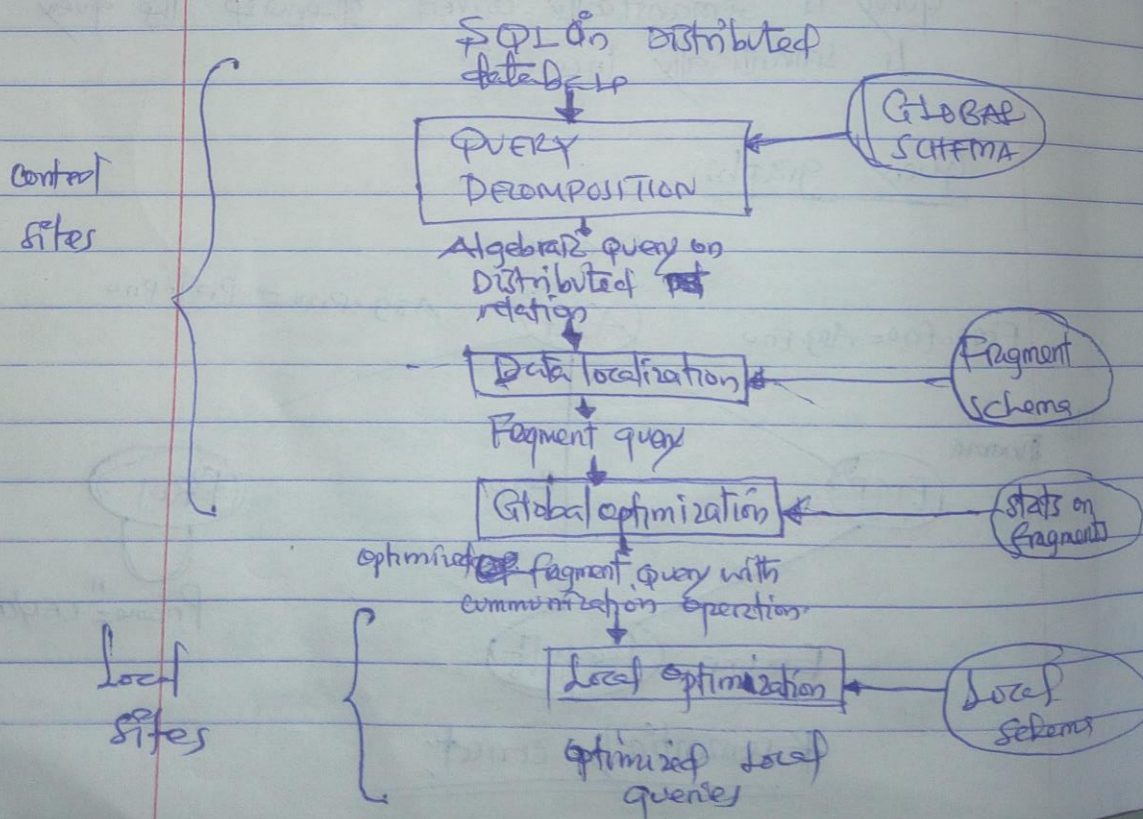 SQL on Distributed
database
GLOBAL
SCHEMA
QUERY
DECOMPOSITION
control
sites
Algebraic query on
Distributed
relation
Data localization
Fragment
schema
Fegment query
Global optimization
stats on
fragments
optimized fragment query with
communization operation.
Local
sites
Local optimization
Local
Optimized Local
queries